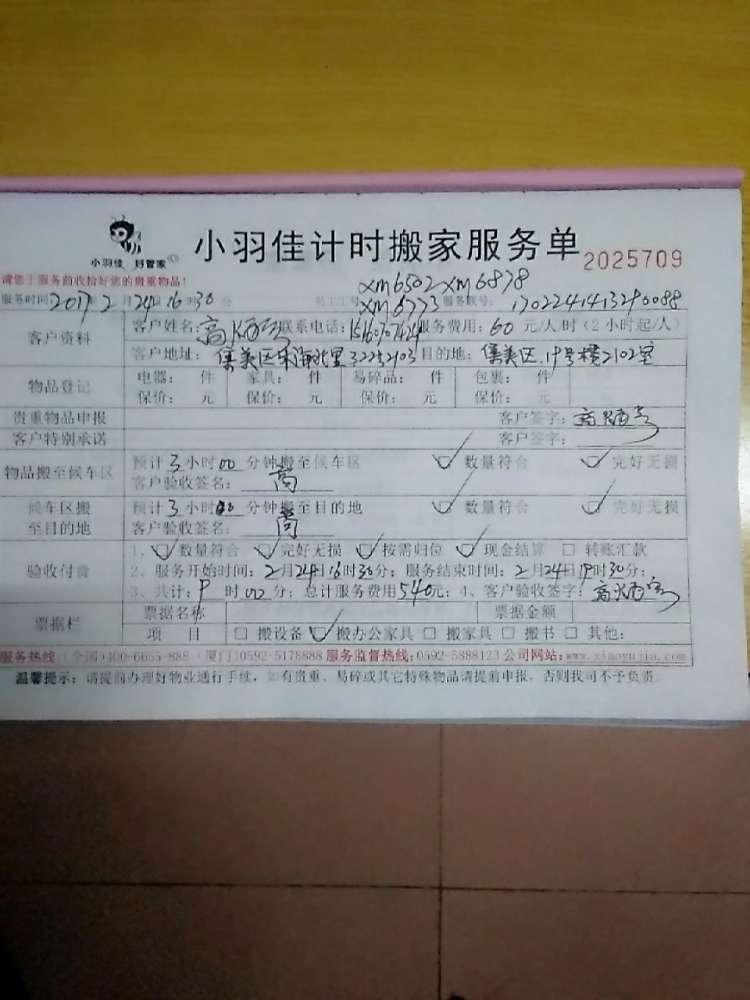 小羽佳 好管家
小羽佳计时搬家服务单 2025709
请您于服务前收拾好您的贵重物品!
xm6502 xm6878
服务时间 2017 2月24日16时30分 员工工号 xm6773 服务联号: 1702241413290088
客户资料 客户姓名: 高 联系电话: 服务费用: 60 元/人/时 (2小时起/人)
客户地址: 集美区 目的地: 集美区 19号楼2102室
物品登记 电器: 件 家具: 件 易碎品: 件 包裹: 件
保价: 元 保价: 元 保价: 元 保价: 元
贵重物品申报 客户签字: 高
客户特别承诺 客户签字:
物品搬至候车区 预计3小时00分钟搬至候车区 数量符合 完好无损
客户验收签名: 高
候车区搬至目的地 预计3小时00分钟搬至目的地 数量符合 完好无损
客户验收签名: 高
验收付费 1、 数量符合 完好无损 按需归位 现金结算 转账汇款
2、服务开始时间: 2月24日16时30分; 服务结束时间: 2月24日19时30分;
3、共计: 9时00分; 总计服务费用540元; 4、客户验收签字: 高
票据栏 票据名称 票据金额
项 目 搬设备 搬办公家具 搬家具 搬书 其他:
服务热线: (全国)400-6655-888 (厦门)0592-5178888 服务监督热线: 0592-5888123 公司网站: www.xiaoyujia.com
温馨提示: 请提前办理好物业通行手续, 如有贵重、易碎或其它特殊物品请提前申报, 否则我司不予负责